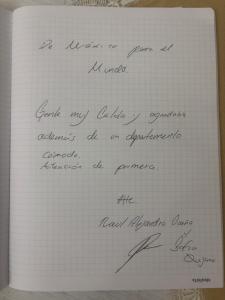 De México para el
Mundo.
Gente muy Calida y agradable
además de un departamento
comodo.
Atención de primera.
Atte.
Raul Alejandro
y